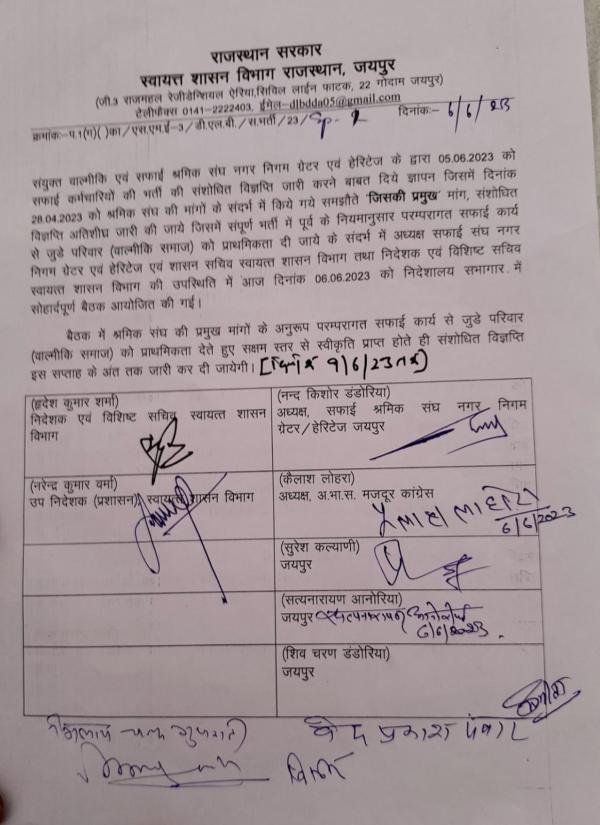 राजस्थान सरकार
स्वायत्त शासन विभाग राजस्थान, जयपुर
(जी.3 राजमहल रेजीडेन्शियल ऐरिया,सिविल लाईन फाटक, 22 गोदाम जयपुर)
टेलीफोक्स 0141-2222403, ईमेल-dlbdda05@gmail.com
क्रमांकः-प.1(ग)( )का/एस.एम.ई-3/डी.एल.बी./स.भर्ती/23/ दिनांकः- 6/6/23
संयुक्त वाल्मीकि एवं सफाई श्रमिक संघ नगर निगम ग्रेटर एवं हेरिटेज के द्वारा 05.06.2023 को
सफाई कर्मचारियों की भर्ती की संशोधित विज्ञप्ति जारी करने बाबत दिये ज्ञापन जिसमें दिनांक
28.04.2023 को श्रमिक संघ की मांगों के संदर्भ में किये गये समझौते 'जिसकी प्रमुख' मांग, संशोधित
विज्ञप्ति अतिशीघ्र जारी की जाये जिसमें संपूर्ण भर्ती में पूर्व के नियमानुसार परम्परागत सफाई कार्य
से जुडे परिवार (वाल्मीकि समाज) को प्राथमिकता दी जाये के संदर्भ में अध्यक्ष सफाई संघ नगर
निगम ग्रेटर एवं हेरिटेज एवं शासन सचिव स्वायत्त शासन विभाग तथा निदेशक एवं विशिष्ट सचिव
स्वायत्त शासन विभाग की उपस्थिति में आज दिनांक 06.06.2023 को निदेशालय सभागार में
सोहार्दपूर्ण बैठक आयोजित की गई।
बैठक में श्रमिक संघ की प्रमुख मांगों के अनुरूप परम्परागत सफाई कार्य से जुडे परिवार
(वाल्मीकि समाज) को प्राथमिकता देते हुए सक्षम स्तर से स्वीकृति प्राप्त होते ही संशोधित विज्ञप्ति
इस सप्ताह के अंत तक जारी कर दी जायेगी। [दिनांक 9/6/23 तक]
(हृदेश कुमार शर्मा)
निदेशक एवं विशिष्ट सचिव स्वायत्त शासन
विभाग
(नन्द किशोर डंडोरिया)
अध्यक्ष, सफाई श्रमिक संघ नगर निगम
ग्रेटर/हेरिटेज जयपुर
(नरेन्द्र कुमार वर्मा)
उप निदेशक (प्रशासन) स्वायत्त शासन विभाग
(कैलाश लोहरा)
अध्यक्ष, अ.भा.स. मजदूर कांग्रेस
6/6/2023
(सुरेश कल्याणी)
जयपुर
(सत्यनारायण आनोरिया)
जयपुर सत्यनारायण
6/6/2023
(शिव चरण डंडोरिया)
जयपुर
वेद प्रकाश पंवार